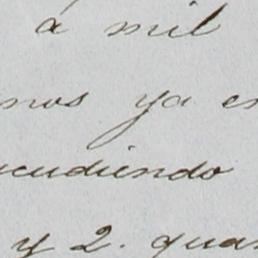 á mil
nos ya en
cudiendo
y 2. qua